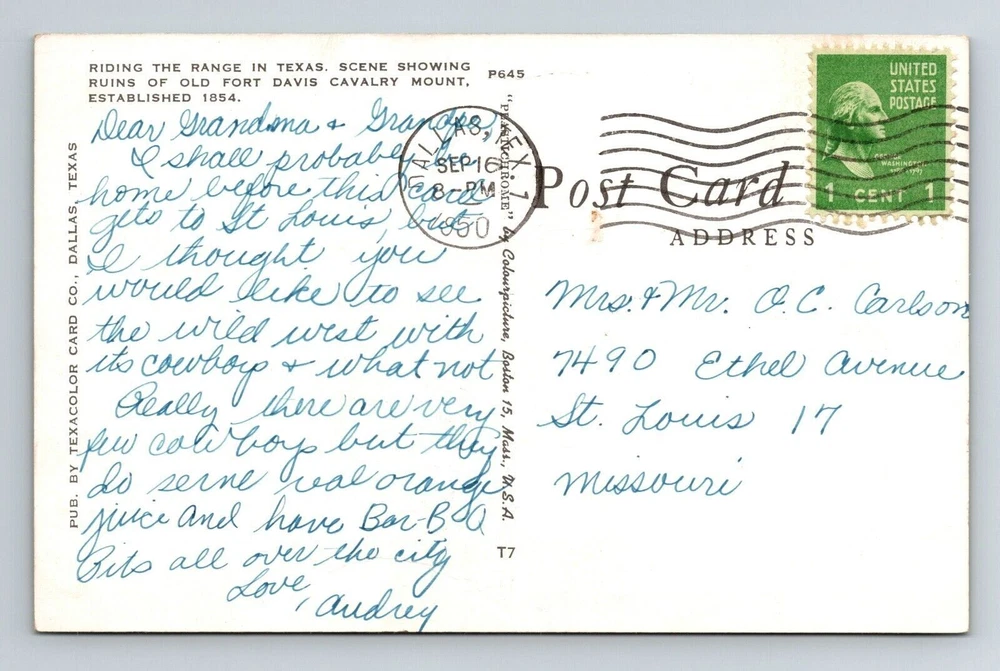 RIDING THE RANGE IN TEXAS. SCENE SHOWING
RUINS OF OLD FORT DAVIS CAVALRY MOUNT,
ESTABLISHED 1854.
P645
Dear Grandma & Grandpa,
I shall probably be
home before this card
gets to St Louis, but
I thought you
would like to see
the wild west with
its cowboys & what not
Really there are very
few cowboys but they
do serve real orange
juice and have Bar-B-Q
Pits all over the city
Love,
Audrey
PUB. BY TEXACOLOR CARD CO., DALLAS, TEXAS
"PLASTICHROME" by Colourpicture, Boston 15, Mass., U.S.A.
T7
DALLAS, TEX. 1
SEP 16
8 - PM
1950
UNITED
STATES
POSTAGE
WASHINGTON
1 CENT 1
Post Card
ADDRESS
Mrs. & Mr. O. C. Carlson
7490 Ethel Avenue
St. Louis 17
Missouri